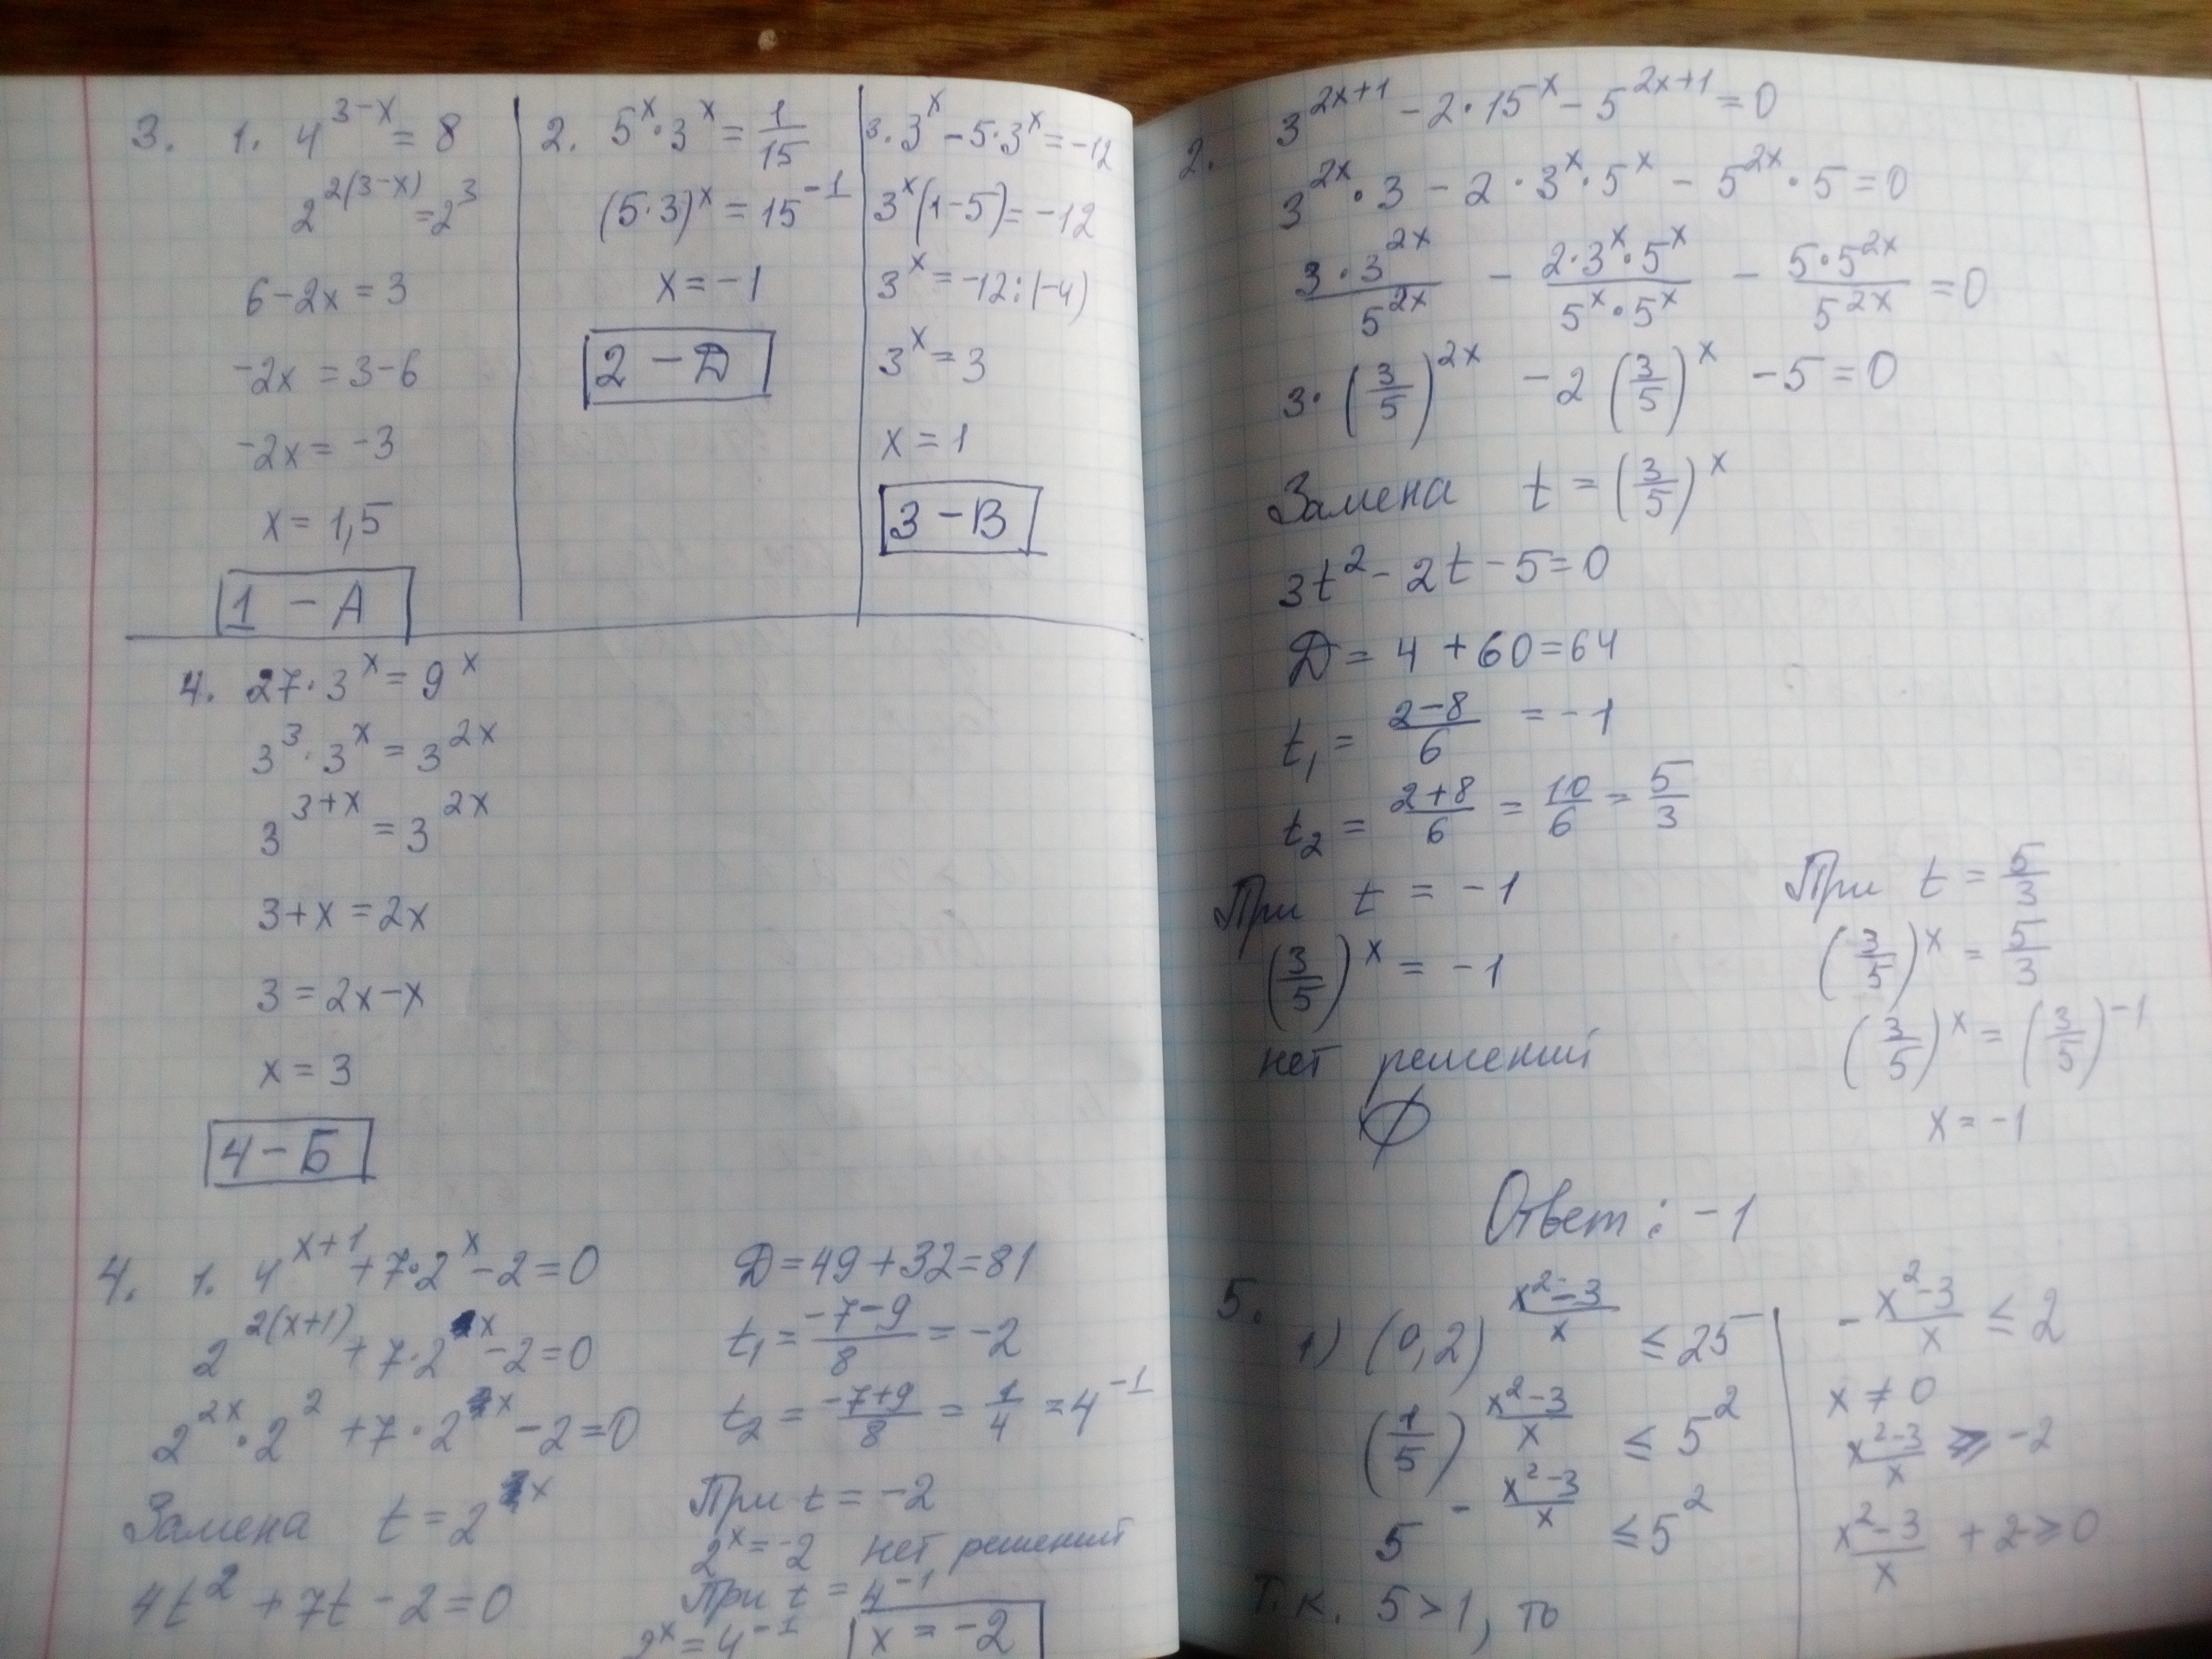 3. 1. 4^{3-x} = 8
2^{2(3-x)} = 2^3
6-2x = 3
-2x = 3-6
-2x = -3
x = 1,5
1 - А
2. 5^x·3^x = 1/15
(5·3)^x = 15^{-1}
x = -1
2 - Д
3. 3^x - 5·3^x = -12
3^x(1-5) = -12
3^x = -12:(-4)
3^x = 3
x = 1
3 - В
4. 27·3^x = 9^x
3^3·3^x = 3^{2x}
3^{3+x} = 3^{2x}
3+x = 2x
3 = 2x-x
x = 3
4 - Б
4. 1. 4^{x+1} + 7·2^x - 2 = 0
2^{2(x+1)} + 7·2^x - 2 = 0
2^{2x}·2^2 + 7·2^x - 2 = 0
Замена t = 2^x
4t^2 + 7t - 2 = 0
Д = 49 + 32 = 81
t_1 = (-7-9)/8 = -2
t_2 = (-7+9)/8 = 1/4 = 4^{-1}
При t = -2
2^x = -2 нет решений
При t = 4^{-1}
2^x = 4^{-1} x = -2
2. 3^{2x+1} - 2·15^x - 5^{2x+1} = 0
3^{2x}·3 - 2·3^x·5^x - 5^{2x}·5 = 0
(3·3^{2x})/(5^{2x}) - (2·3^x·5^x)/(5^x·5^x) - (5·5^{2x})/(5^{2x}) = 0
3·(3/5)^{2x} - 2(3/5)^x - 5 = 0
Замена t = (3/5)^x
3t^2 - 2t - 5 = 0
Д = 4 + 60 = 64
t_1 = (2-8)/6 = -1
t_2 = (2+8)/6 = 10/6 = 5/3
При t = -1
(3/5)^x = -1
нет решений
∅
При t = 5/3
(3/5)^x = 5/3
(3/5)^x = (3/5)^{-1}
x = -1
Ответ: -1
5.
1) (0,2)^{(x^2-3)/x} ≤ 25
(1/5)^{(x^2-3)/x} ≤ 5^2
5^{-(x^2-3)/x} ≤ 5^2
Т.к. 5 > 1, то
-(x^2-3)/x ≤ 2
x ≠ 0
(x^2-3)/x ≥ -2
(x^2-3)/x + 2 ≥ 0